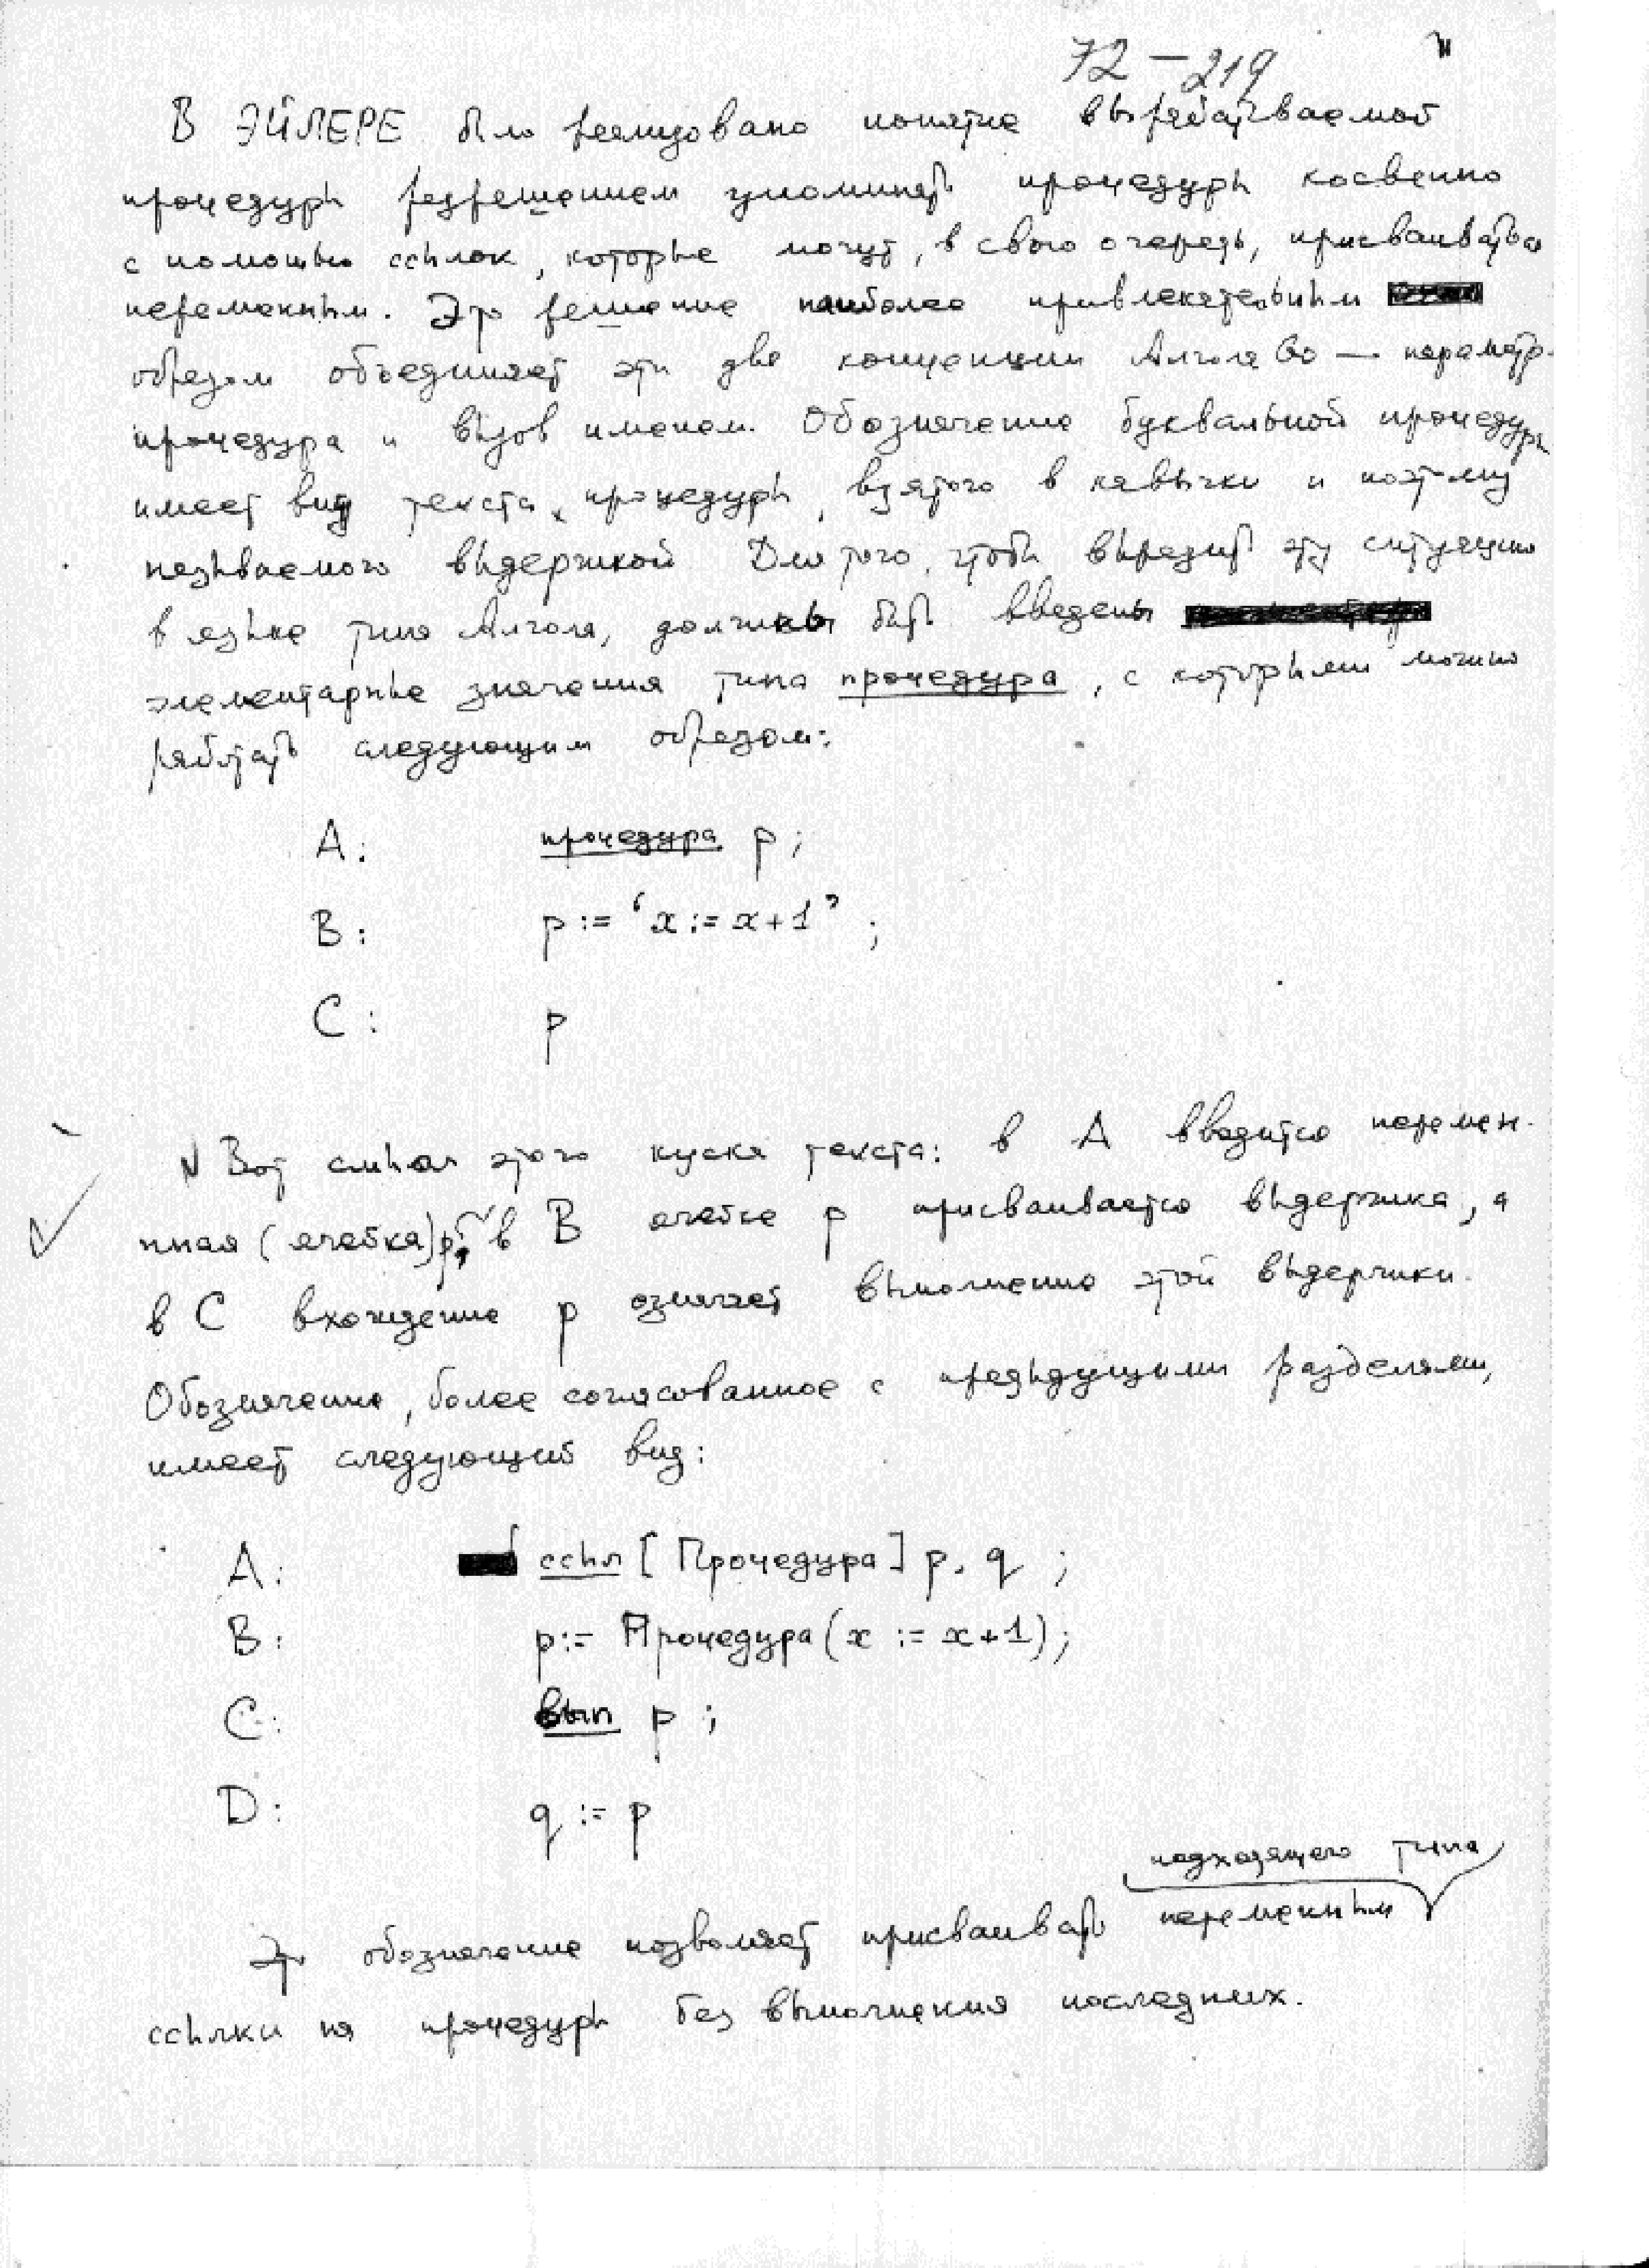 72-219
В ЭЙЛЕРЕ было реализовано понятие вырабатываемой
процедуры разрешением упоминать процедуры косвенно
с помощью ссылок, которые могут, в свою очередь, присваиваться
переменным. Это решение наиболее привлекательным
образом объединяет эти две концепции Алгола 60 — параметр-
процедура и вызов именем. Обозначение буквальной процедуры
имеет вид текста процедуры, взятого в кавычки и поэтому
называемого выдержкой. Для того, чтобы выразить эту ситуацию
в языке типа Алгола, должны быть введены
элементарные значения типа процедура, с которыми можно
работать следующим образом:
A: процедура p;
B: p := ‘x := x+1’ ;
C: p
Вот смысл этого куска текста: в A вводится перемен-
нная (ячейка) p, в B ячейке p присваивается выдержка, а
в C вхождение p означает выполнение этой выдержки.
Обозначение, более согласованное с предыдущими разделами,
имеет следующий вид:
A: ссыл [Процедура] p, q ;
B: p := Процедура (x := x+1);
C: вып p ;
D: q := p
подходящего типа
Это обозначение позволяет присваивать переменным
ссылки на процедуры без выполнения последних.